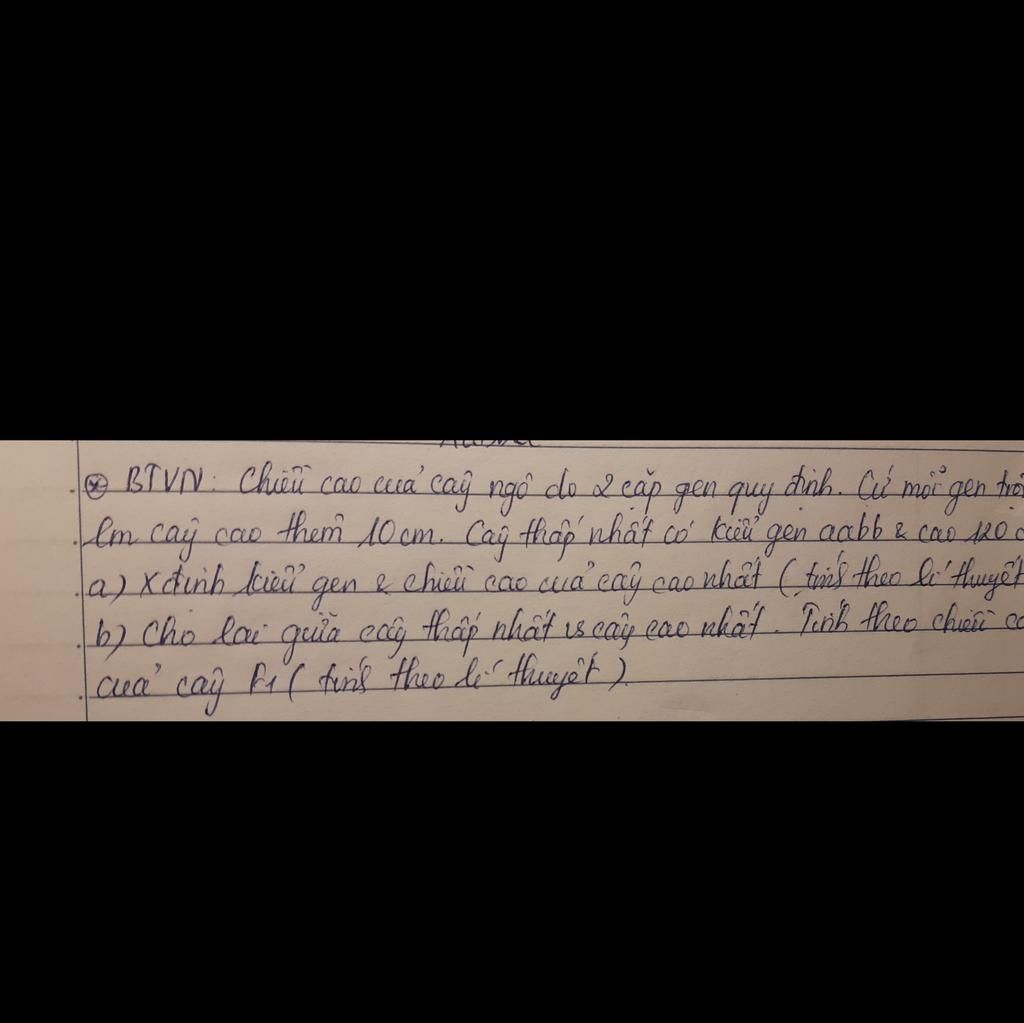 ⊛ BTVN: Chiều cao của cây ngô do 2 cặp gen quy định. Cứ mỗi gen trội
làm cây cao thêm 10cm. Cây thấp nhất có kiểu gen aabb & cao 120 c
a) Xđịnh kiểu gen & chiều cao của cây cao nhất (tính theo lí thuyết
b) Cho lai giữa cây thấp nhất vs cây cao nhất. Tính theo chiều ca
của cây F1 (tính theo lí thuyết)